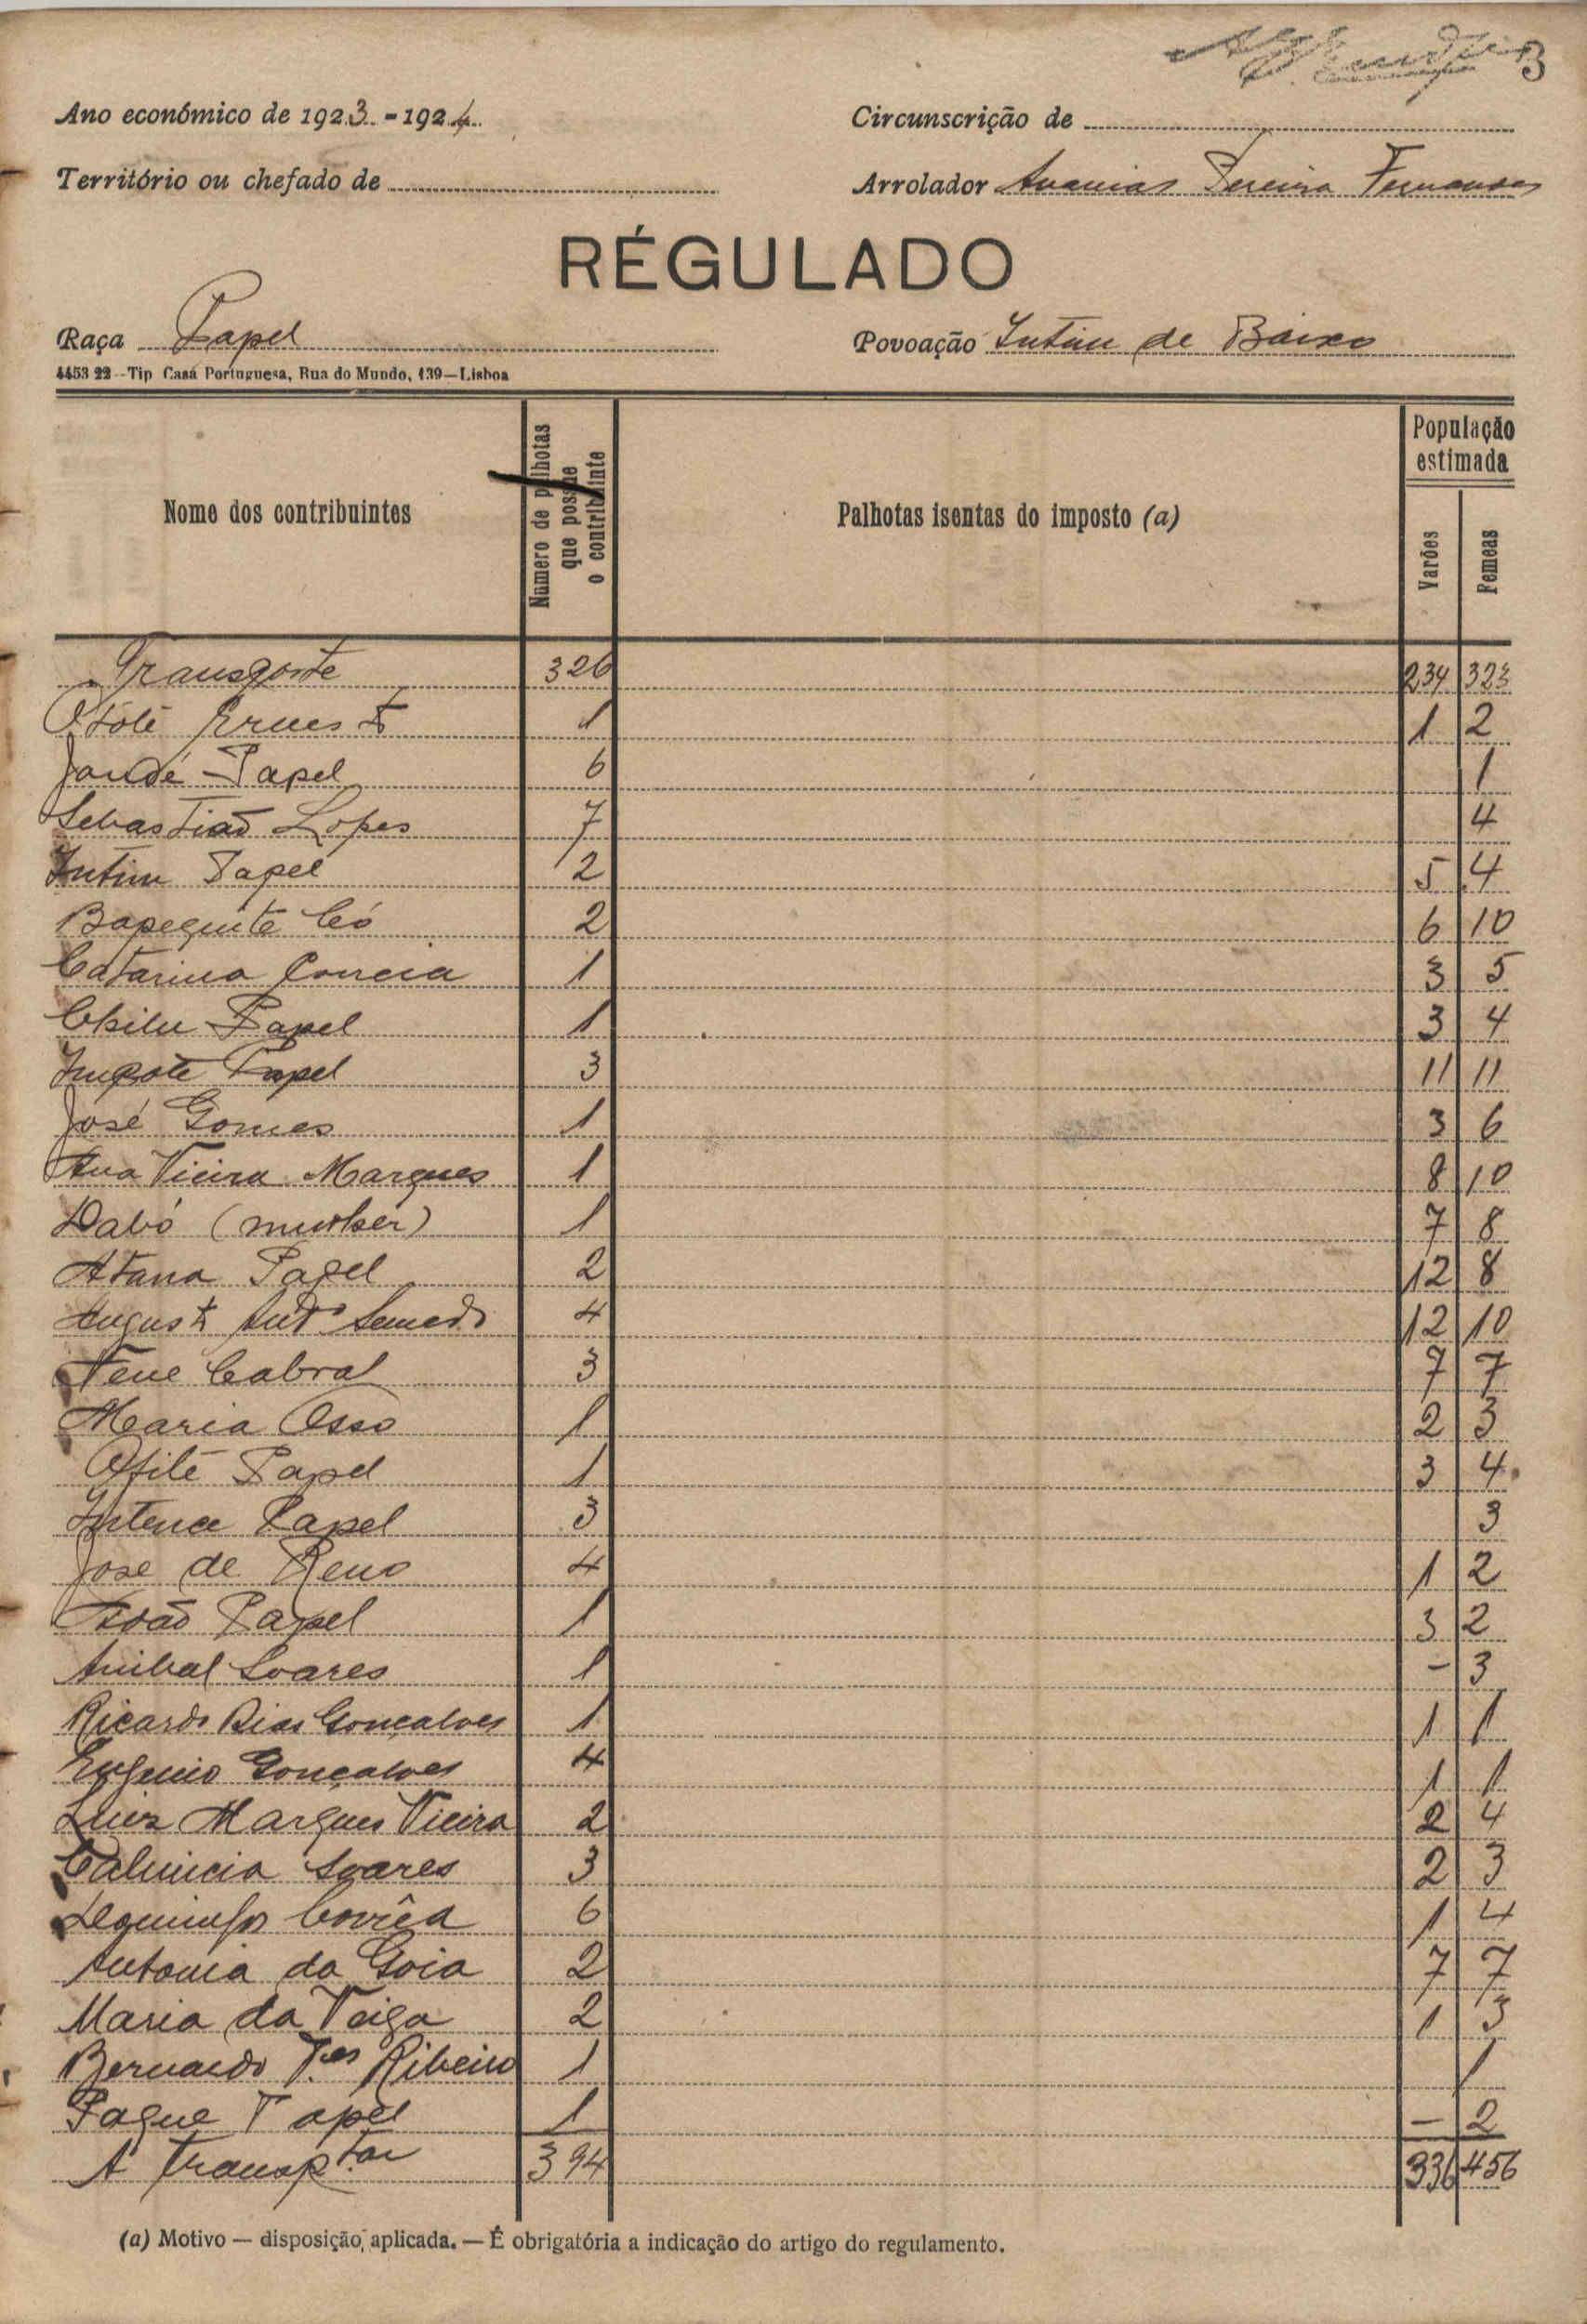 3
Ano económico de 1923-1924 Circunscrição de
Território ou chefado de Arrolador Ananias Pereira Fernandes
RÉGULADO
Raça Papel Povoação Intim de Baixo
4453 22--Tip Casa Portuguesa, Rua do Mundo, 139—Lisboa
Nome dos contribuintes Número de palhotas que possue o contribuinte Palhotas isentas do imposto (a) População estimada Varões Femeas
Transporte 326 234 323
Otolé Ernesto 1 1 2
Jandé Papel 6 1
Sebastião Lopes 7 4
Intim Papel 2 5 4
Bapequite Có 2 6 10
Catarina Correia 1 3 5
Chilu Papel 1 3 4
Impote Papel 3 11 11
José Gomes 1 3 6
Ana Vieira Marques 1 8 10
Dabó (mulher) 1 7 8
Atana Papel 2 12 8
Augusto Antº Semedo 4 12 10
Nene Cabral 3 7 7
Maria Osso 1 2 3
Ofilé Papel 1 3 4
Intence Papel 3 3
José de Reno 4 1 2
Adão Papel 1 3 2
Anibal Soares 1 - 3
Ricardo Dias Gonçalves 1 1 1
Eugenio Gonçalves 4 1 1
Luiz Marques Vieira 2 2 4
Soares 3 2 3
Domingos Corrêa 6 1 4
Antonia da Goia 2 7 7
Maria da Veiga 2 1 3
Bernardo T.es Ribeiro 1 1
Pague Papel 1 - 2
A transp.tar 394 336 456
(a) Motivo — disposição aplicada. — É obrigatória a indicação do artigo do regulamento.